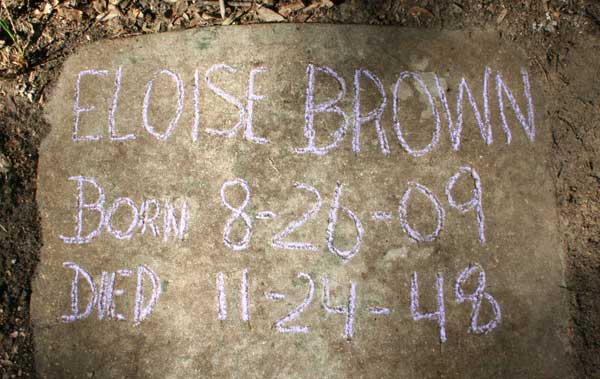 ELOISE BROWN
BORN 8-26-09
DIED 11-24-48